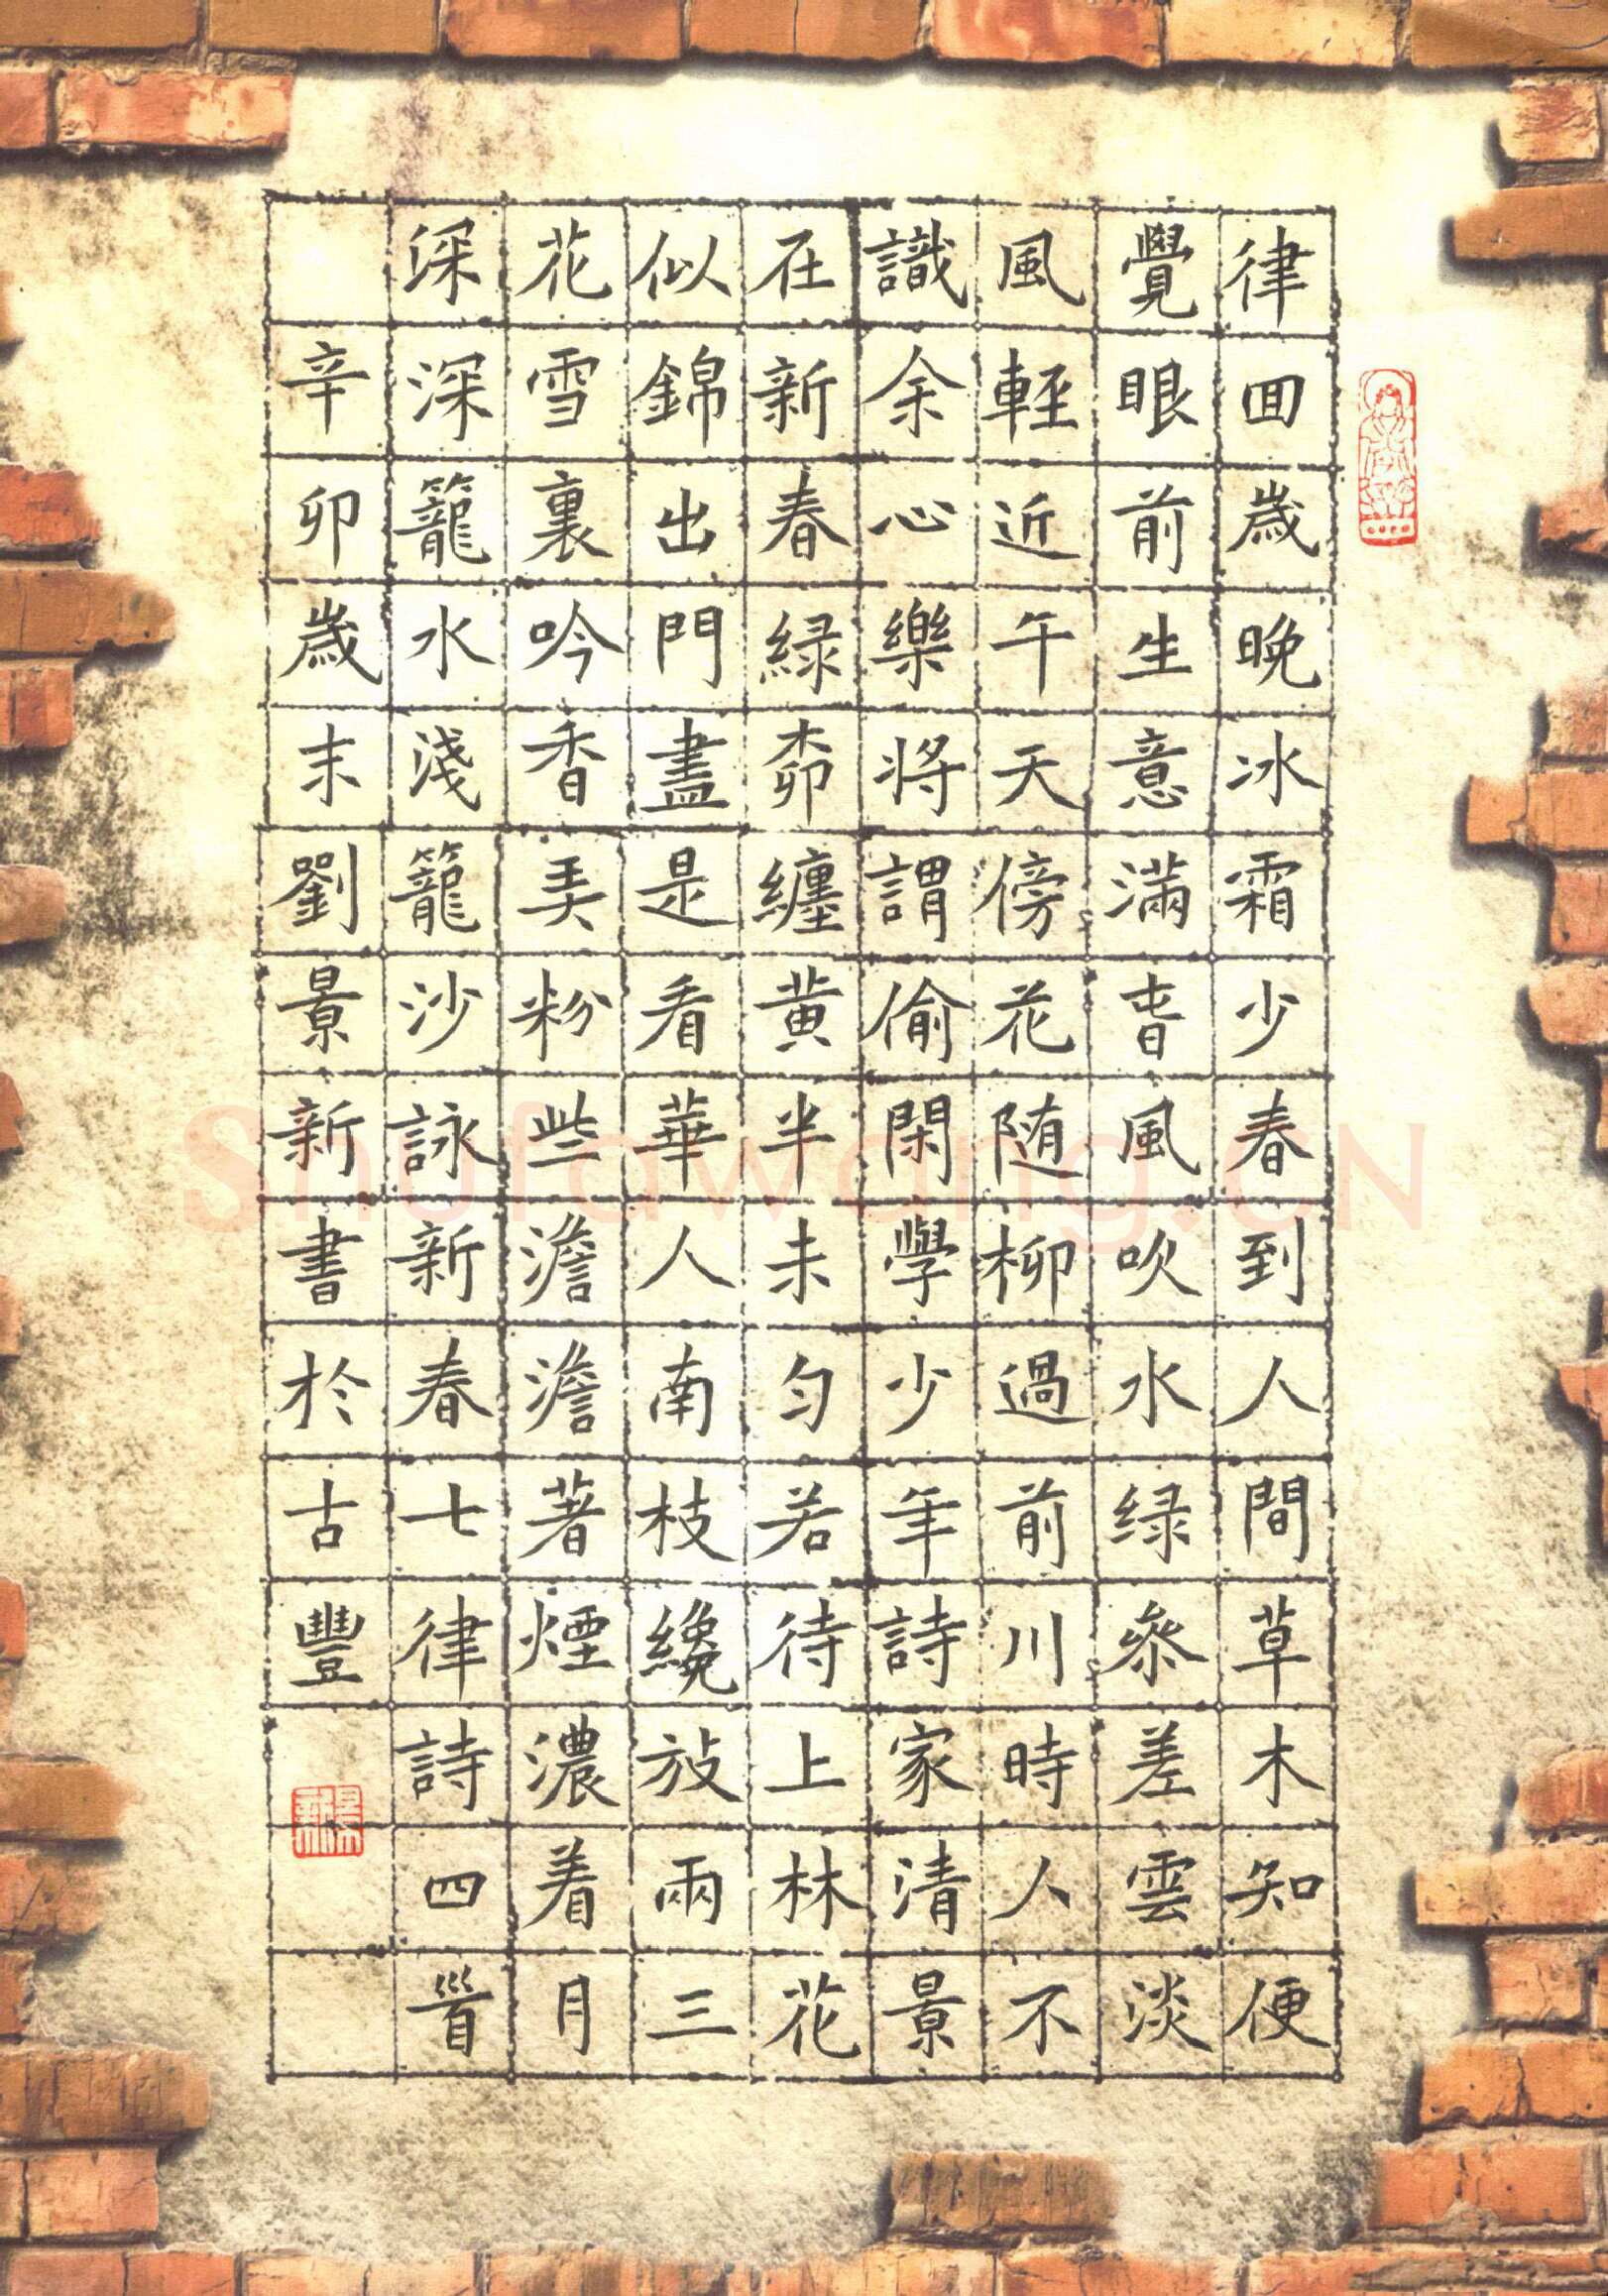 律回歲晚冰霜少春到人間草木知便
覺眼前生意滿旾風吹水绿參差雲淡
風輕近午天傍花随柳過前川時人不
識余心樂將謂偷閑學少年詩家清景
在新春緑桺纏黄半未匀若待上林花
似錦出門盡是看華人南枝纔放兩三
花雪裏吟香弄粉些澹澹著煙濃着月
深深籠水淺籠沙詠新春七律詩四首
辛卯歲末劉景新書於古豐
Shufawang.CN